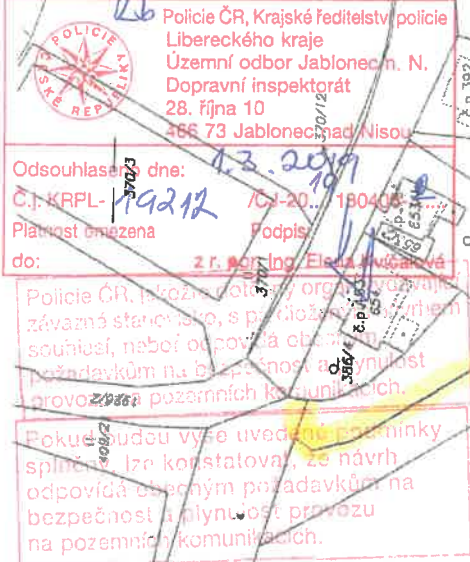 POLICIE
ČESKÉ REPUBLIKY
Policie ČR, Krajské ředitelství policie
Libereckého kraje
Územní odbor Jablonec n. N.
Dopravní inspektorát
28. října 10
466 73 Jablonec nad Nisou
Odsouhlaseno dne: 1.3.2019
Č.j. KRPL- 19212 /ČJ-20.. 19 180406-
Platnost omezena Podpis
do: z r. Ing.
Policie ČR, jakožto dotčený orgán
závazné stanovisko, s předloženým návrhem
souhlasí, neboť odpovídá
požadavkům na bezpečnost a plynulost
provozu na pozemních komunikacích.
Pokud budou výše uvedené podmínky
splněny, lze konstatovat, že návrh
odpovídá obecným požadavkům na
bezpečnost a plynulost provozu
na pozemních komunikacích.
370/3
370/12
370/1
386/
409/2
č.p.